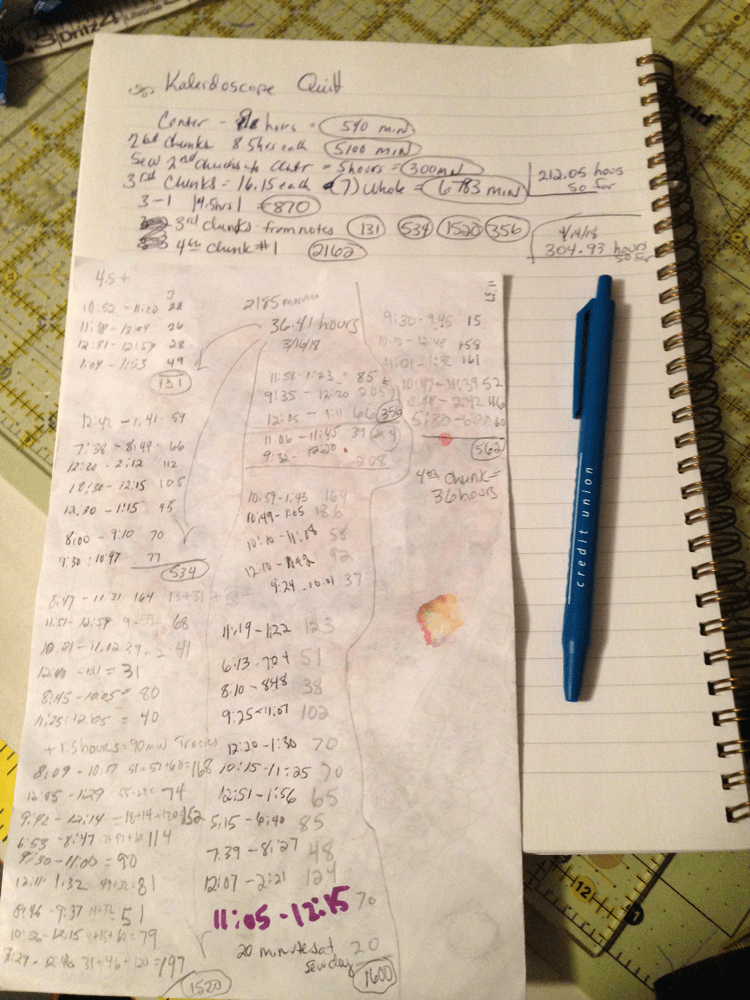 Kaleidoscope Quilt
Center - hours = 540 min
2nd chunks 8.5hrs each 5100 min
Sew 2nd chunks to Center = 5 hours = 300 min
3rd Chunks = 16.15 each (7) whole = 6783 min
212.05 hours
so far
3-1 14.5hrs 870
3rd chunks from notes 131 534 1520 356
4th chunk #1 2162
304.93 hours
so far
4.5+
3
10:52 - 11:20 28
26
12:31 - 12:59 28
1:04 - 1:53 49
131
12:42 - 1:41 59
7:38 - 8:44 66
12:20 - 2:12 112
10:30 - 12:15 105
12:30 - 1:15 45
8:00 - 9:10 70
9:30 - 10:47 77
534
8:47 - 11:31 164
11:51 - 12:59 68
10:21 - 11:02 41
= 31
8:45 - 10:05 = 80
11:25 - 12:05 = 40
+ 1.5 hours = 90 min
8:09 - 10:57 51+57+60 = 168
74
9:42 - 12:14 = 18+14+120 = 152
6:53 - 8:47 114
9:30 - 11:00 = 90
12:11 - 1:32 49+32 = 81
8:46 - 9:37 51
10:56 - 12:15 79
31+46+120 = 197
1520
2185
36.41 hours
3/16/18
11:58 - 1:23 = 85
9:35 - 12:20 205
66 356
11:06 - 11:45 39
208
10:59 - 1:43 164
10:49 - 1:05 136
58
92
9:24 - 10:01 37
11:19 - 1:22 123
51
8:10 - 8:48 38
9:25 - 11:07 102
12:20 - 1:30 70
10:15 - 11:25 70
12:51 - 1:56 65
5:15 - 6:40 85
7:39 - 8:27 48
12:07 - 2:21 124
11:05 - 12:15 70
20 minutes at
sewday 20
1600
9:30 - 9:45 15
10:10 - 12:48 158
161
10:47 - 11:39 52
46
5:30 - 6:30 60
562
4th chunk =
36 hours
credit union